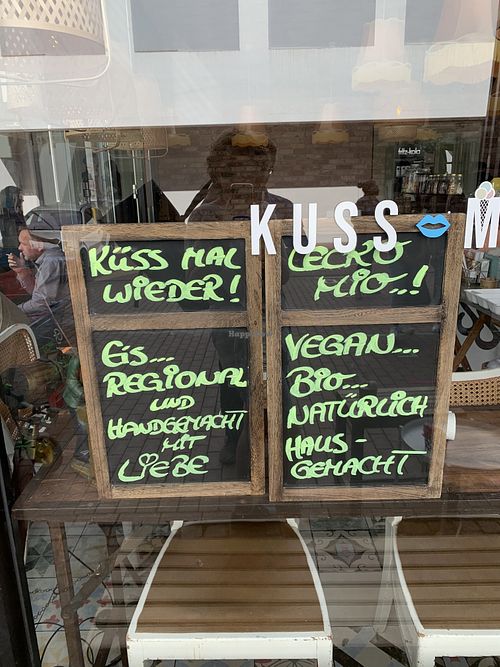 KUSS
M
KÜSS MAL
WIEDER!
Eis...
REGIONAL
UND
HANDGEMACHT
MIT
LIEBE
LECKO
MIO..!
VEGAN...
Bio...
NATÜRLICH
HAUS-
GEMACHT
fritz-kola